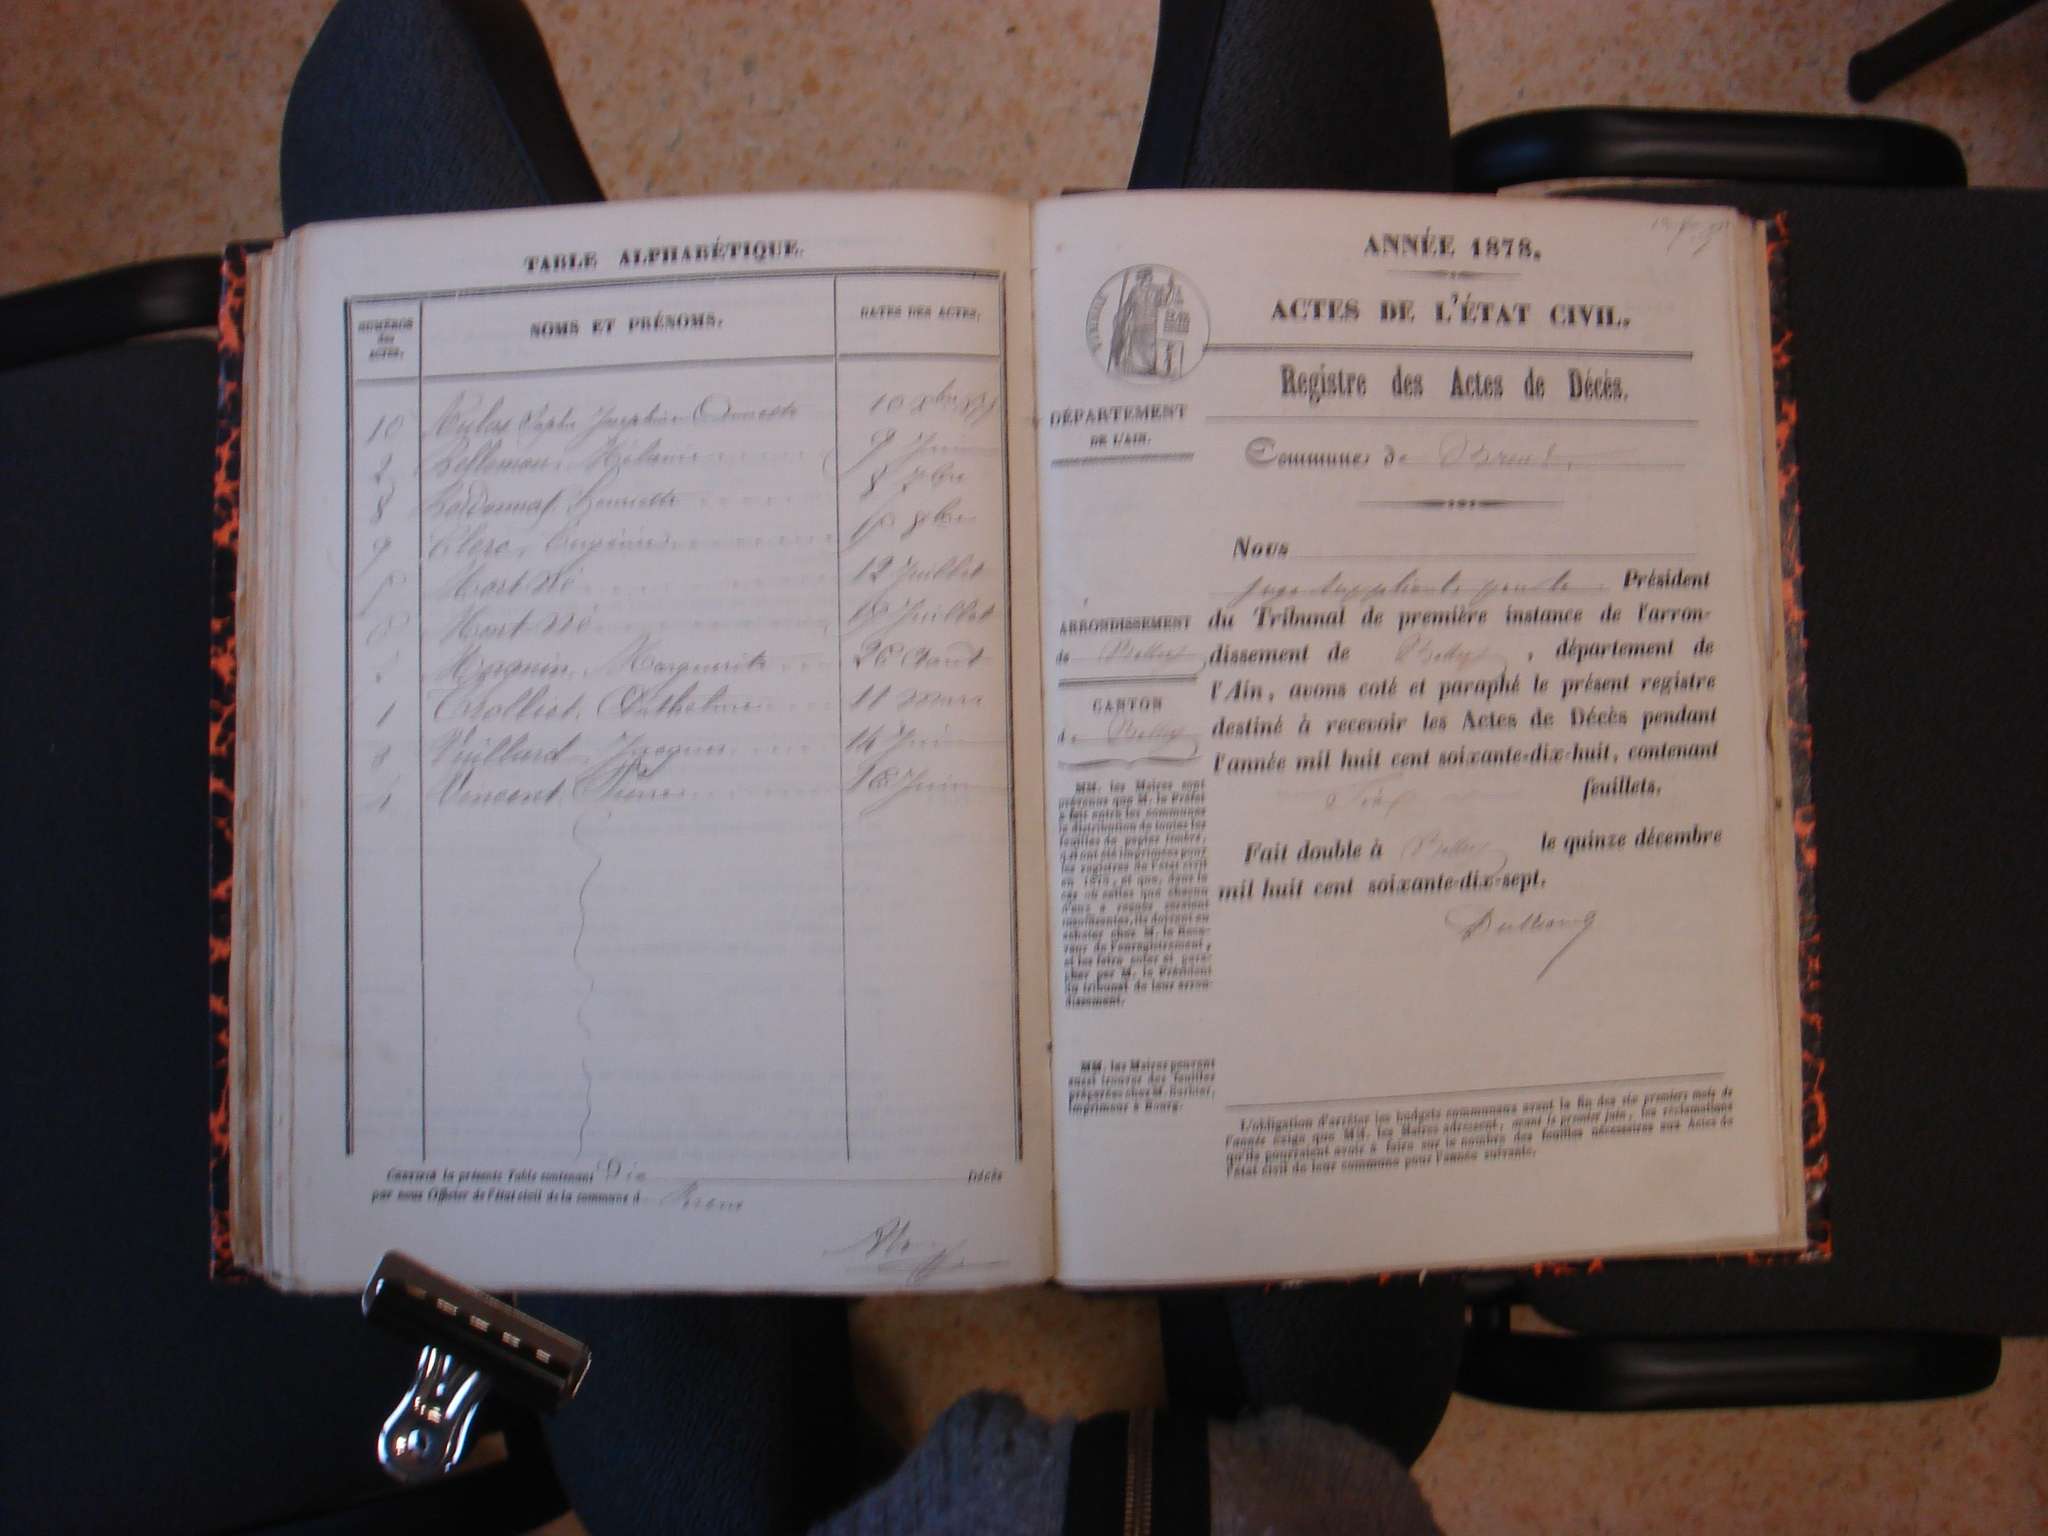 TABLE ALPHABÉTIQUE.
NUMÉROS
des
ACTES.
NOMS ET PRÉNOMS.
DATES DES ACTES.
10 Josephine
2 Mélanie 9 Juin
8 8 7bre
9 Clerc, Eugénie 8bre
Mort-Né 12 Juillet
Mort-Né Juillet
Marguerite 26 Août
1 11 mars
3 Vuillard, Jacques 14 Juin
4 Vincent, Pierre 16 Juin
CERTIFIÉ la présente Table contenant Dix Décès
par nous Officier de l'état civil de la commune d
ANNÉE 1878.
ACTES DE L'ÉTAT CIVIL.
Registre des Actes de Décès.
DÉPARTEMENT
DE L'AIN.
Commune de
ARRONDISSEMENT
de Belley
CANTON
de Belley
MM. les Maires sont
prévenus que M. le Préfet
a fait entre les communes
la distribution de toutes les
feuilles de papier timbré,
qui ont été imprimées pour
les registres de l'état civil
en 1878, et que, dans le
cas où celles que chacun
d'eux a reçues seraient
insuffisantes, ils devront en
acheter chez M. le Rece-
veur de l'enregistrement,
et les faire coter et para-
pher par M. le Président
du tribunal de leur arron-
dissement.
MM. les Maires peuvent
aussi trouver des feuilles
préparées chez M. Barbier,
imprimeur à Bourg.
Nous
juge suppléant pour le Président
du Tribunal de première instance de l'arron-
dissement de Belley, département de
l'Ain, avons coté et paraphé le présent registre
destiné à recevoir les Actes de Décès pendant
l'année mil huit cent soixante-dix-huit, contenant
feuillets.
Fait double à Belley le quinze décembre
mil huit cent soixante-dix-sept.
L'obligation d'arrêter les budgets communaux avant la fin des six premiers mois de
l'année exige que MM. les Maires adressent, avant le premier juin, les réclamations
qu'ils pourraient avoir à faire sur le nombre des feuilles nécessaires aux Actes de
l'état civil de leur commune pour l'année suivante.